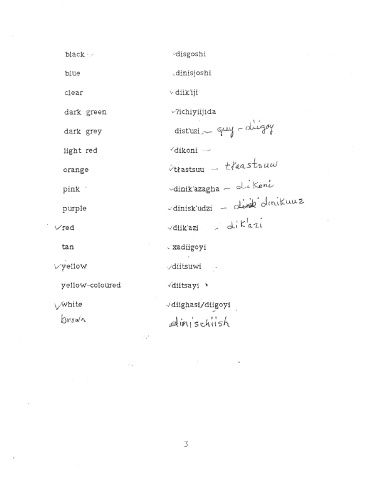 black - disgoshi
blue dinisjoshi
clear ✓ diik'iji
dark green ✓ ?ichiyiijida
dark grey dist'usi - guy - diigoy
light red ✓ dikoni -
orange ✓ tłeastsuu - tłeastsuw
pink ✓ dinik'azagha - dikoni
purple ✓ dinisk'udzi - dinikuuz
✓ red ✓ diik'azi - dik'azi
tan - xadiigoyi
✓ yellow ✓ diitsuwi
yellow-coloured ✓ diitsayi
✓ white ✓ diighasi/diigoyi
brown dinischiish
3